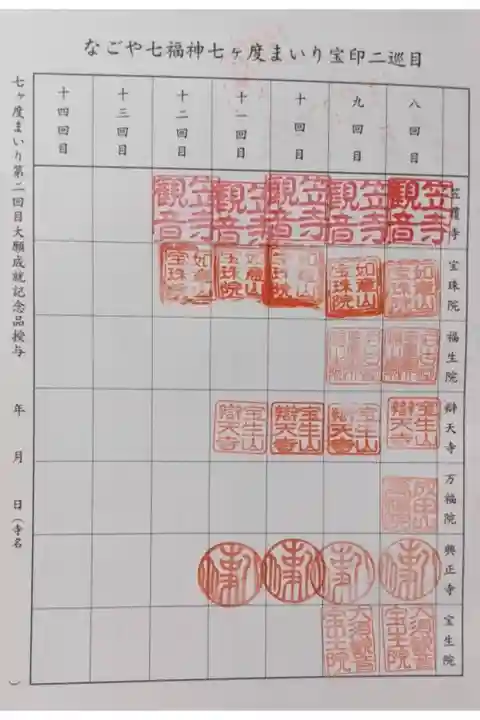 なごや七福神七ヶ度まいり宝印二巡目
八回目
九回目
十回目
十一回目
十二回目
十三回目
十四回目
笠覆寺
笠寺観音
笠寺観音
笠寺観音
笠寺観音
笠寺観音
宝珠院
如意山宝珠院
如意山宝珠院
如意山宝珠院
如意山宝珠院
如意山宝珠院
福生院
辯天寺
宝生山辯天寺
宝生山辯天寺
宝生山辯天寺
宝生山辯天寺
万福院
興正寺
宝生院
大須観音宝生院
大須観音宝生院
七ヶ度まいり第二回目大願成就記念品授与　年　月　日（寺名　）